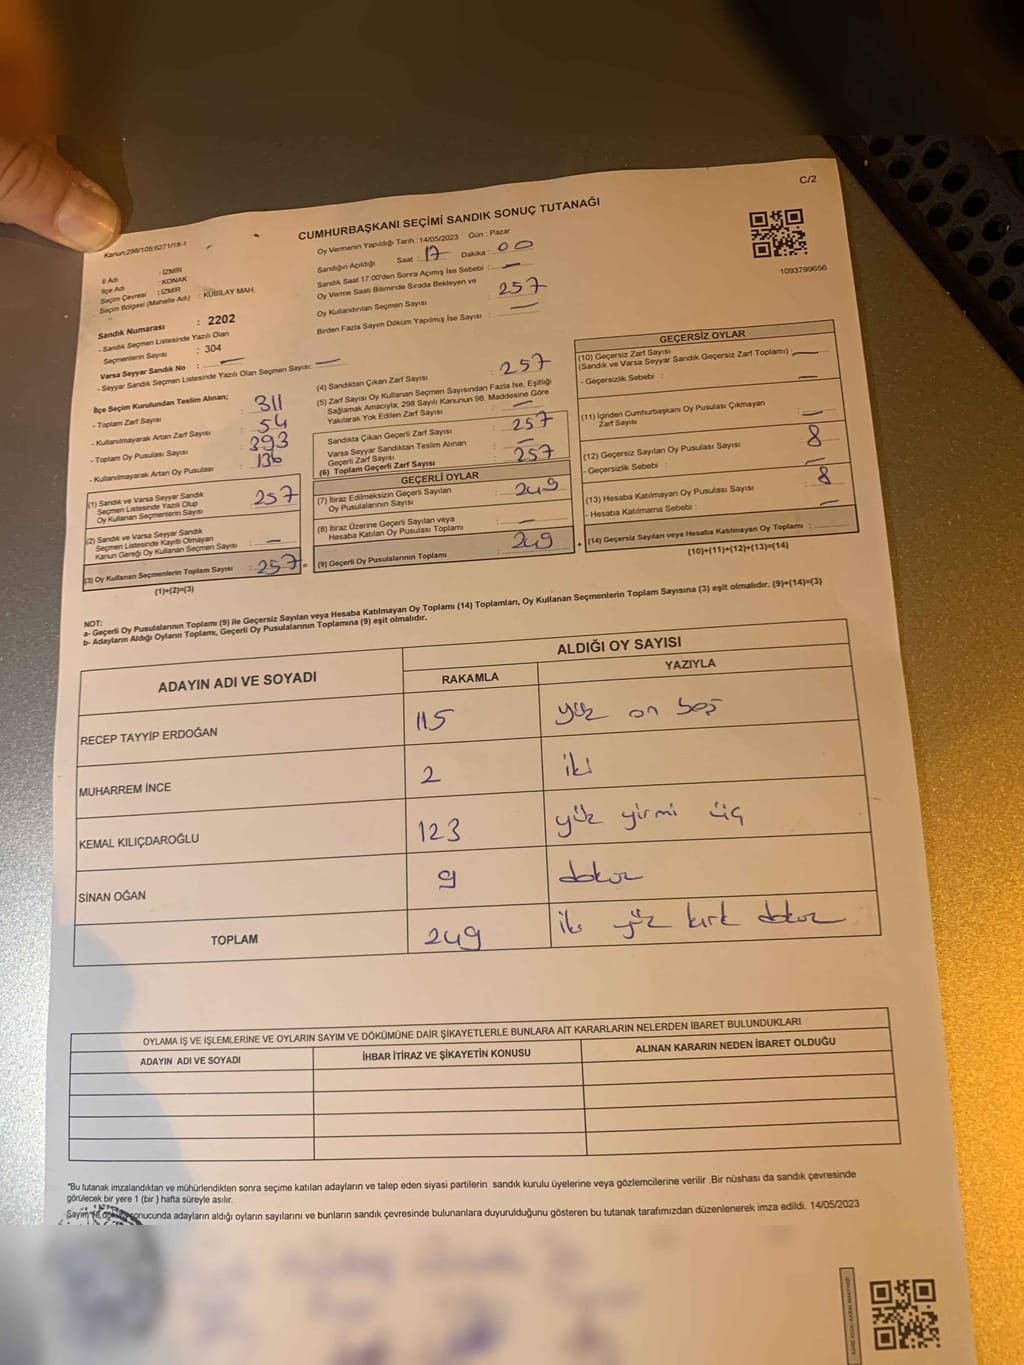 C/2
Kanun:298/105;6271/18-1
CUMHURBAŞKANI SEÇİMİ SANDIK SONUÇ TUTANAĞI
1093799656
İl Adı : İZMİR
İlçe Adı : KONAK
Seçim Çevresi : İZMİR
Seçim Bölgesi (Mahalle Adı) : KÜBİLAY MAH.
Sandık Numarası : 2202
- Sandık Seçmen Listesinde Yazılı Olan
Seçmenlerin Sayısı : 304
Varsa Seyyar Sandık No : —
- Seyyar Sandık Seçmen Listesinde Yazılı Olan Seçmen Sayısı: —
Oy Vermenin Yapıldığı Tarih : 14/05/2023 Gün : Pazar
Sandığın Açıldığı Saat : 17 Dakika : 00
Sandık Saat 17:00'den Sonra Açımış İse Sebebi : —
Oy Verme Saati Bitiminde Sırada Bekleyen ve
Oy Kullandırılan Seçmen Sayısı : 257
Birden Fazla Sayım Döküm Yapılmış İse Sayısı : —
İlçe Seçim Kurulundan Teslim Alınan;
- Toplam Zarf Sayısı : 311
- Kullanılmayarak Artan Zarf Sayısı : 54
- Toplam Oy Pusulası Sayısı : 393
- Kullanılmayarak Artan Oy Pusulası : 136
(1) Sandık ve Varsa Seyyar Sandık
Seçmen Listesinde Yazılı Olup
Oy Kullanan Seçmenlerin Sayısı : 257
(2) Sandık ve Varsa Seyyar Sandık
Seçmen Listesinde Kayıtlı Olmayan
Kanun Gereği Oy Kullanan Seçmen Sayısı : —
(3) Oy Kullanan Seçmenlerin Toplam Sayısı : 257 =
(1)+(2)=(3)
(4) Sandıktan Çıkan Zarf Sayısı : 257
(5) Zarf Sayısı Oy Kullanan Seçmen Sayısından Fazla İse, Eşitliği
Sağlamak Amacıyla, 298 Sayılı Kanunun 98. Maddesine Göre
Yakılarak Yok Edilen Zarf Sayısı : —
Sandıkta Çıkan Geçerli Zarf Sayısı : 257
Varsa Seyyar Sandıktan Teslim Alınan
Geçerli Zarf Sayısı : —
(6) Toplam Geçerli Zarf Sayısı : 257
GEÇERLİ OYLAR
(7) İtiraz Edilmeksizin Geçerli Sayılan
Oy Pusulalarının Sayısı : 249
(8) İtiraz Üzerine Geçerli Sayılan veya
Hesaba Katılan Oy Pusulası Toplamı : —
(9) Geçerli Oy Pusulalarının Toplamı : 249 +
GEÇERSİZ OYLAR
(10) Geçersiz Zarf Sayısı
(Sandık ve Varsa Seyyar Sandık Geçersiz Zarf Toplamı) : —
- Geçersizlik Sebebi : —
(11) İçinden Cumhurbaşkanı Oy Pusulası Çıkmayan
Zarf Sayısı : —
(12) Geçersiz Sayılan Oy Pusulası Sayısı : 8
- Geçersizlik Sebebi : —
(13) Hesaba Katılmayan Oy Pusulası Sayısı : 8
- Hesaba Katılmama Sebebi : —
(14) Geçersiz Sayılan veya Hesaba Katılmayan Oy Toplamı :
(10)+(11)+(12)+(13)=(14)
NOT:
a- Geçerli Oy Pusulalarının Toplamı (9) ile Geçersiz Sayılan veya Hesaba Katılmayan Oy Toplamı (14) Toplamları, Oy Kullanan Seçmenlerin Toplam Sayısına (3) eşit olmalıdır. (9)+(14)=(3)
b- Adayların Aldığı Oyların Toplamı, Geçerli Oy Pusulalarının Toplamına (9) eşit olmalıdır.
ADAYIN ADI VE SOYADI
ALDIĞI OY SAYISI
RAKAMLA YAZIYLA
RECEP TAYYİP ERDOĞAN 115 yüz on beş
MUHARREM İNCE 2 iki
KEMAL KILIÇDAROĞLU 123 yüz yirmi üç
SİNAN OĞAN 9 dokuz
TOPLAM 249 iki yüz kırk dokuz
OYLAMA İŞ VE İŞLEMLERİNE VE OYLARIN SAYIM VE DÖKÜMÜNE DAİR ŞİKAYETLERLE BUNLARA AİT KARARLARIN NELERDEN İBARET BULUNDUKLARI
ADAYIN ADI VE SOYADI İHBAR İTİRAZ VE ŞİKAYETİN KONUSU ALINAN KARARIN NEDEN İBARET OLDUĞU
*Bu tutanak imzalandıktan ve mühürlendikten sonra seçime katılan adayların ve talep eden siyasi partilerin sandık kurulu üyelerine veya gözlemcilerine verilir .Bir nüshası da sandık çevresinde
görülecek bir yere 1 (bir ) hafta süreyle asılır.
Sayım ve döküm sonucunda adayların aldığı oyların sayılarını ve bunların sandık çevresinde bulunanlara duyurulduğunu gösteren bu tutanak tarafımızdan düzenlenerek imza edildi. 14/05/2023